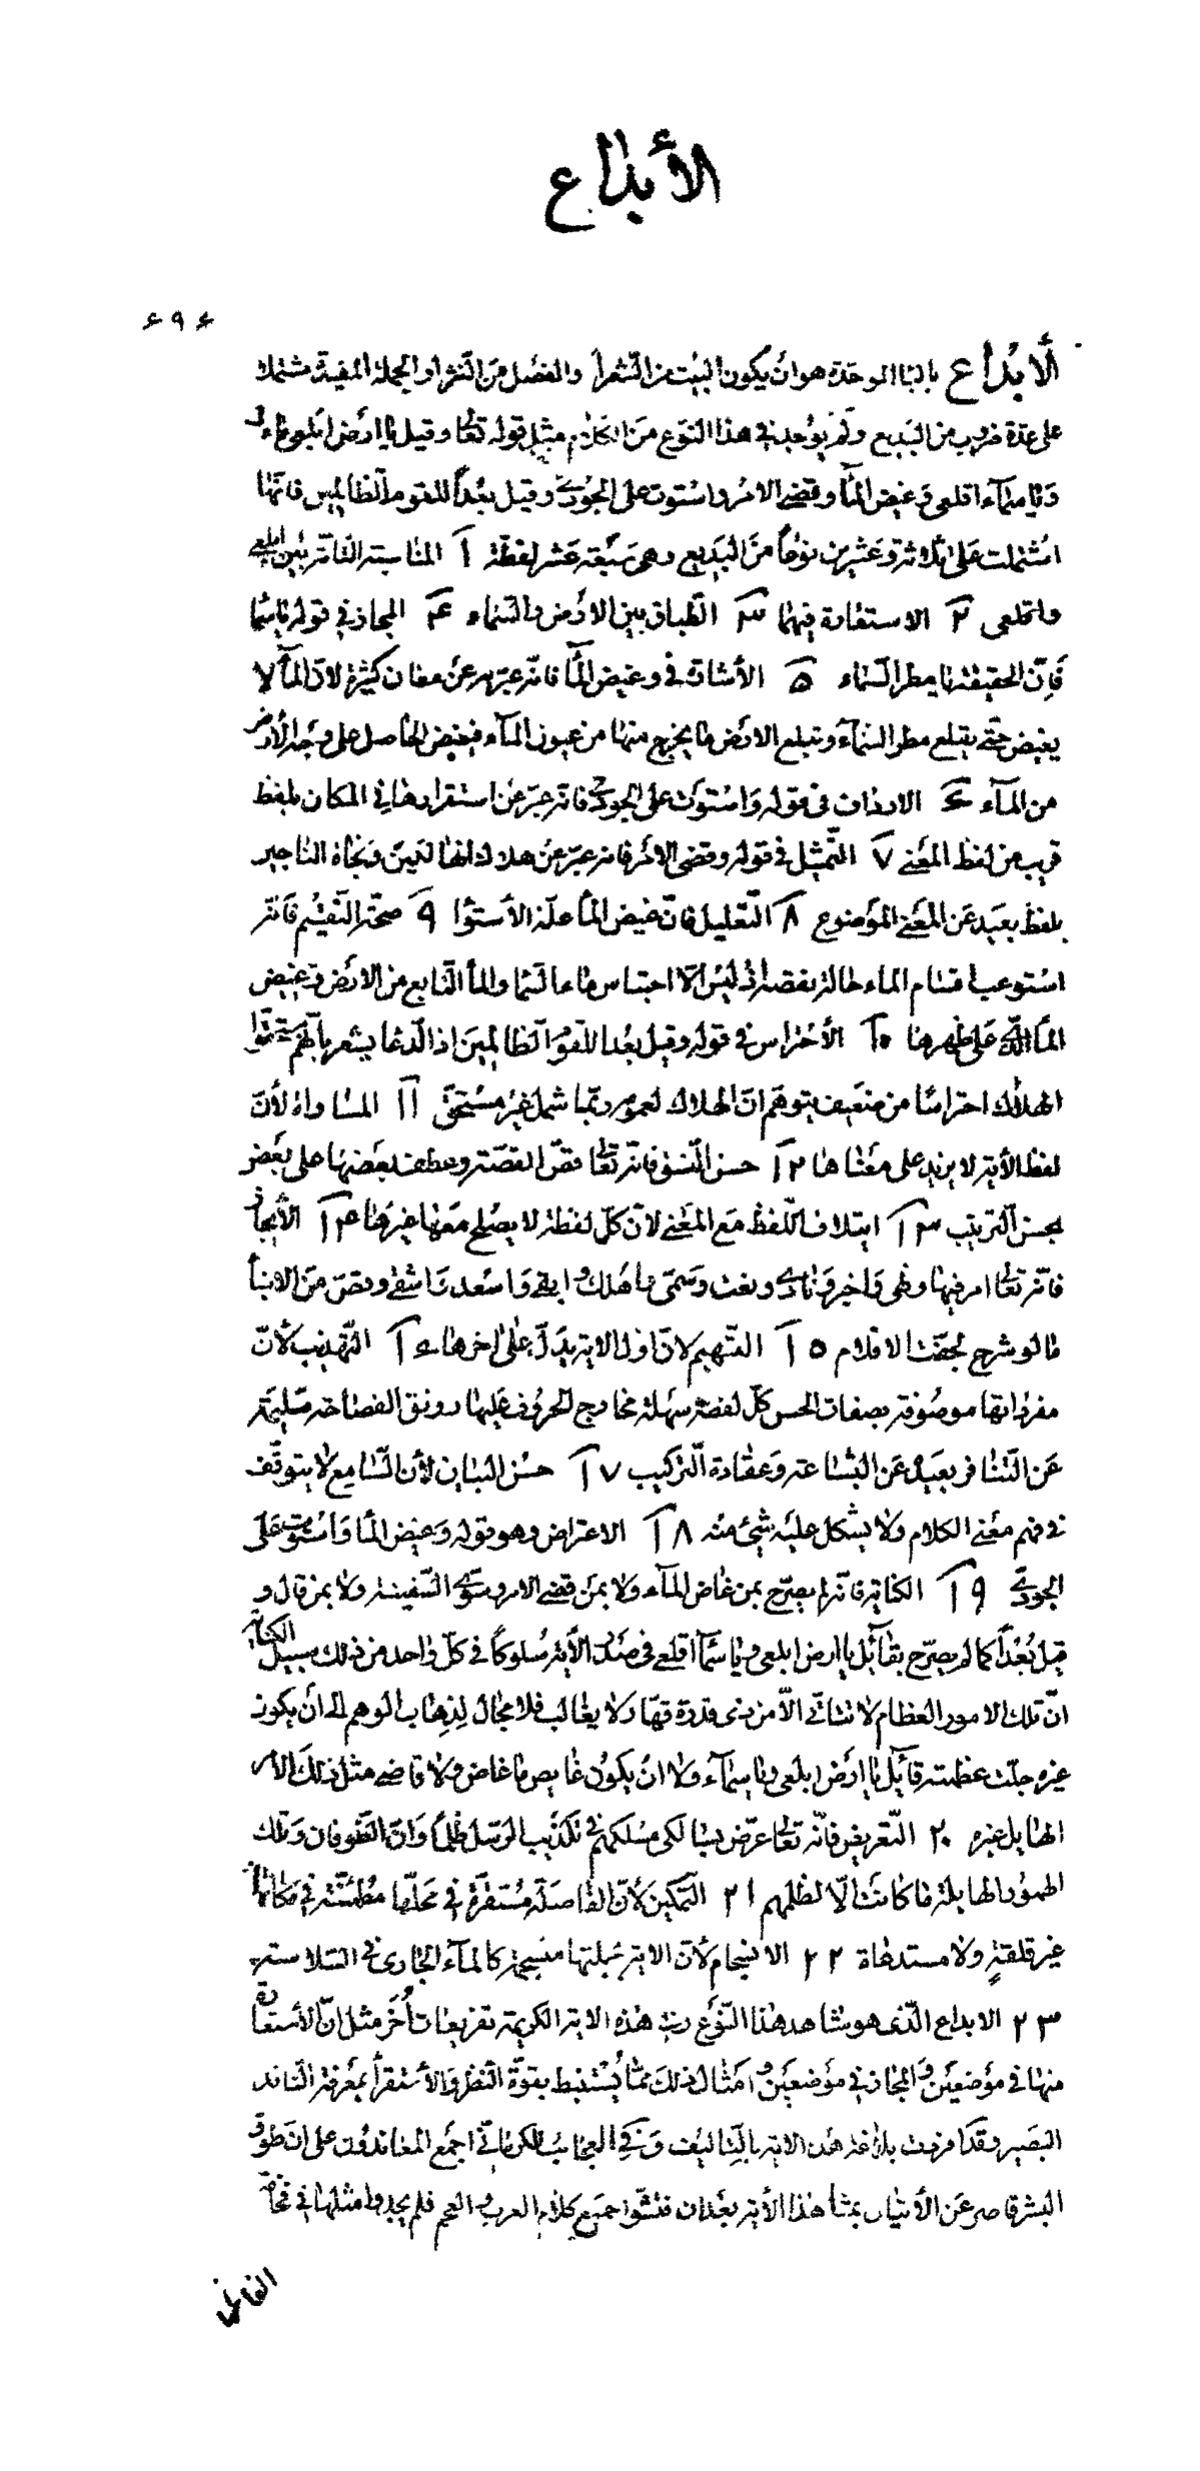 الأبداع
۶۹۶
ألأبْداع بالباء الموحّدة هو ان يكون البيت من الشّعر أو الفصل من النّثر او الجملة المفيدة مشتملا
على عدّة ضروب من البديع ولم يوجد في هذا النّوع من الكلام مثل قوله تعالى وقيل يا ارض ابلعي ماءك
ويا سماء اقلعي وغيض الماء وقضي الامر واستوت على الجوديّ وقيل بعُداً للقوم الظالمين فانّها
اشتملت على ثلاثة وعشرين نوعاً من البديع وهي سبعة عشر لفظة ١ المناسبة التامّة بين ابلعي
واقلعي ٢ الاستعارة فيهما ٣ الطّباق بين الارض والسّماء ۴ المجاز في قوله يا سماء
فإنّ الحقيقة يا مطر السّماء ۵ الأشارة في وغيض الماء فانّه عبّر به عن معان كثيرة لانّ الماء لا
يغيض حتّى يقلع مطر السماء وتبلع الارض ما يخرج منها من عيون المآء فيغيض الحاصل على وجه الأرض
من المآء ۶ الارداف في قوله واستوت على الجوديّ فانّه عبّر عن استقرارها في المكان بلفظ
قريب من لفظ المعنى ٧ التّمثيل في قوله وقضي الامر فانه عبّر عن هلاك الهالكين ونجاة الناجين
بلفظ بعيد عن المعنى الموضوع ٨ التّعليل فانّ غيض الماء علّة الأستواء ٩ صحّة التّقسيم فانّه
استوعب اقسام الماء حالة نقصه اذ ليس الّا احتباس ماء السّماء والماء النّابع من الارض وغيض
الماء الّذي على ظهرها ١٠ الأحتراس في قوله وقيل بعُدا للقوم الظالمين اذ الّدعا يشعر بأنّهم مستحقّوا
الهلاك احتراسا من ضعيف يتوهّم انّ الهلاك لعمومه ربّما شمل غير مستحقّ ١١ المساواة لأنّ
لفظ الأية لا يزيد على معناها ١٢ حسن النّسق فانّه تعالى قصّ القصّة وعطف بعضها على بعض
بحسن الترتيب ١٣ ايتلاف اللّفظ مع المعنى لانّ كلّ لفظة لا يصلح معها غيرها ١۴ الأيجاز
فانّه تعالى امر فيها ونهى واخبر ونادى ونعت وسمّى واهلك وابقى واسعد واشقى وقصّ من الانباء
ما لو شرح لجفّت الاقلام ١۵ التّسهيم لانّ اوّل الاية يدلّ على اخرها ١۶ التّهذيب لأنّ
مفرداتها موصوفة بصفات الحسن كلّ لفظة سهلة مخارج الحروف عليها رونق الفصاحة سليمة
عن التّنافر بعيدة عن البشاعة وعقادة التّركيب ١٧ حسن البيان لأنّ السّامع لا يتوقّف
في فهم معنى الكلام ولا يشكل عليه شيئ منه ١٨ الاعتراض وهو قوله وغيض الماء واستوت على
الجوديّ ١٩ الكناية فانّه لم يصرّح بمن غاض المآء ولا بمن قضى الامر وسوّى السّفينة ولا بمن قال و
قيل بُعْداً كما لم يصرّح بقائل يا ارض ابلعي ويا سماء اقلعي في صدر الأية سلوكاً في كلّ واحد من ذلك سبيل الكناية
انّ تلك الامور العظام لا تتأتّى الّا من ذي قدرة قهّار لا يغالب فلا مجال لذهاب الوهم الى أن يكون
غيره جلّت عظمته قائل يا ارض ابلعي ويا سماء ولا ان يكون غايض ما غاض ولا قاضي مثل ذلك الأمر
الهايل غيره ٢٠ التّعريض فانّه تعالى عرّض بسالكي مسلكهم في تكذيب الرّسل ظلماً وانّ الطّوفان وتلك
الصّور الهايلة ما كانت الّا لظلمهم ٢١ التّمكين لأنّ الفاصلة مستقرّة في محلّها مطمئنّة في مكانها
غير قلقة ولا مستدعاة ٢٢ الانسجام لأنّ الاية بجملتها منسجمة كالمآء الجاري في السّلاسة
٢٣ الابداع الّذي هو شاهد هذا النّوع وفي هذه الاية الكريمة تفريعات أُخَر مثل انّ الأستعارة
منها في موضعين والمجاز في موضعين وامثال ذلك ممّا يُستنبط بقوّة النّظر والأستقراء بمعرفة النّاقد
البصير وقد افردت بلاغة هذه الاية بالتّاليف وفي العجائب للكرماني اجمع المعاندون على انّ طوق
البشر قاصر عن الأتيان بمثل هذه الأية بعد ان فتّشوا جميع كلام العرب والعجم فلم يجدوا مثلها في فخامة